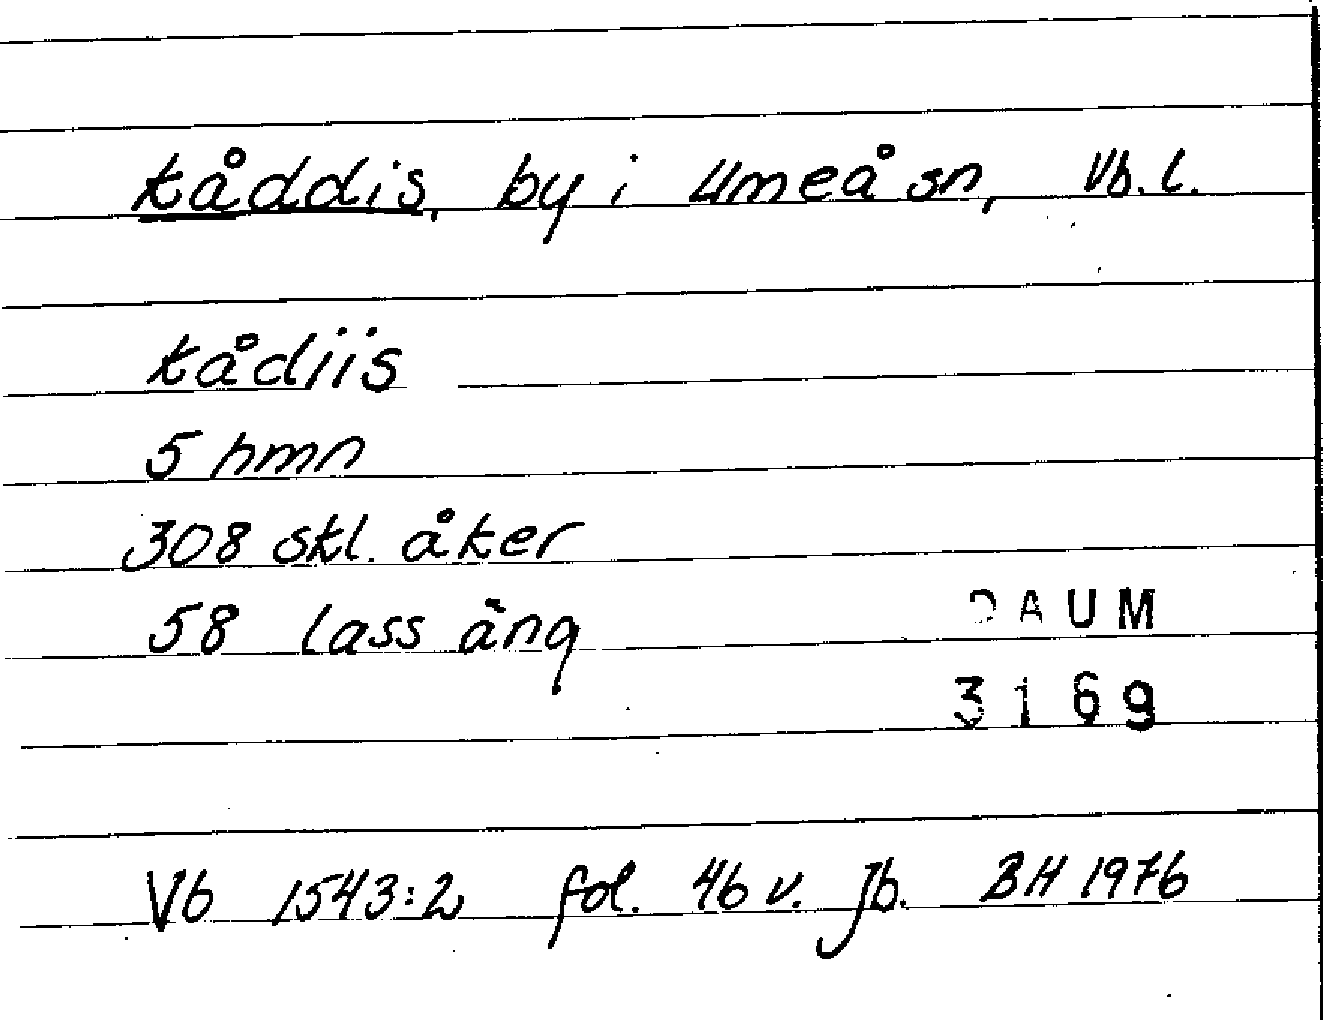 tåddis, by i Umeå sn, Vb. l.
tådiis
5 hmn
308 skl. åker
58 lass äng
DAUM
3169
Vb 1543:2 fol. 46 v. Jb. BH 1976